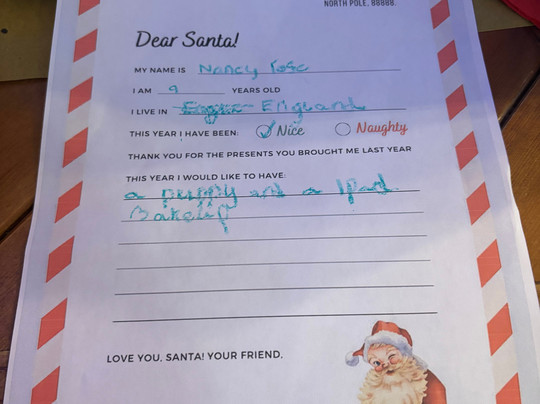 NORTH POLE, 88888.
Dear Santa!
MY NAME IS Nancy Rose
I AM 9 YEARS OLD
I LIVE IN England
THIS YEAR I HAVE BEEN: Nice Naughty
THANK YOU FOR THE PRESENTS YOU BROUGHT ME LAST YEAR
THIS YEAR I WOULD LIKE TO HAVE:
a puppy and a Ipad
LOVE YOU, SANTA! YOUR FRIEND,